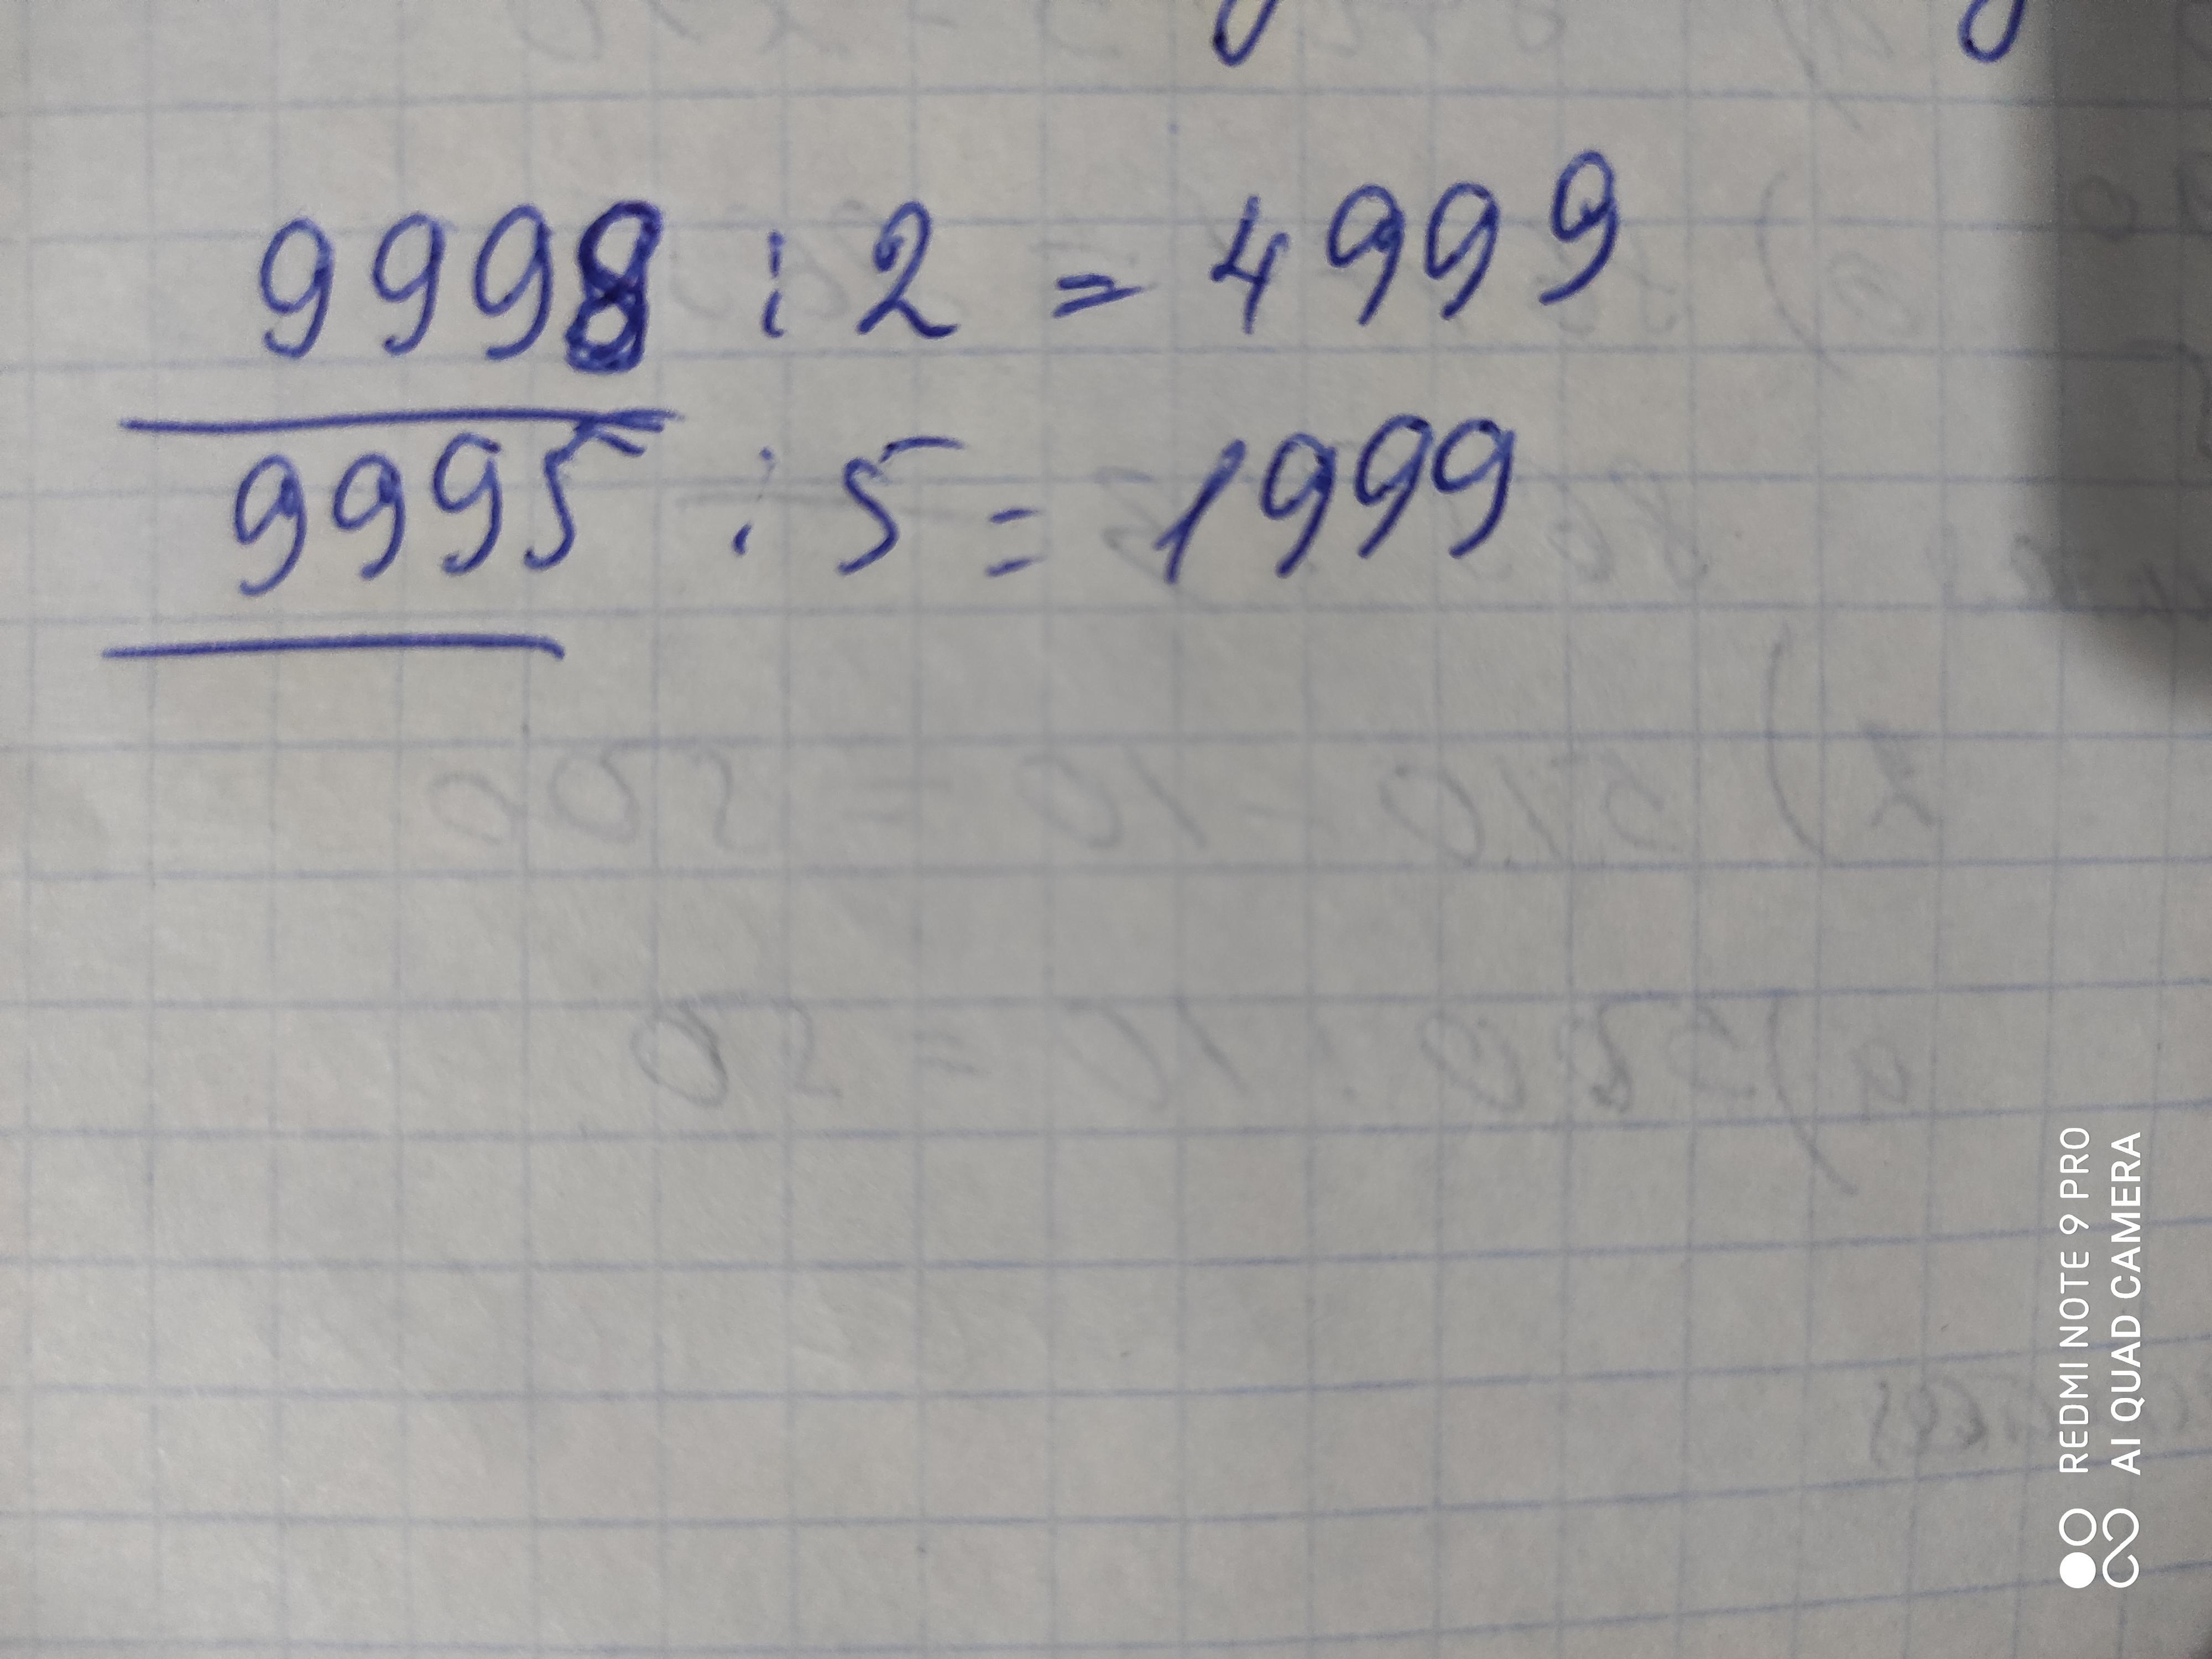 9998 : 2 = 4999
9995 : 5 = 1999
REDMI NOTE 9 PRO
AI QUAD CAMERA